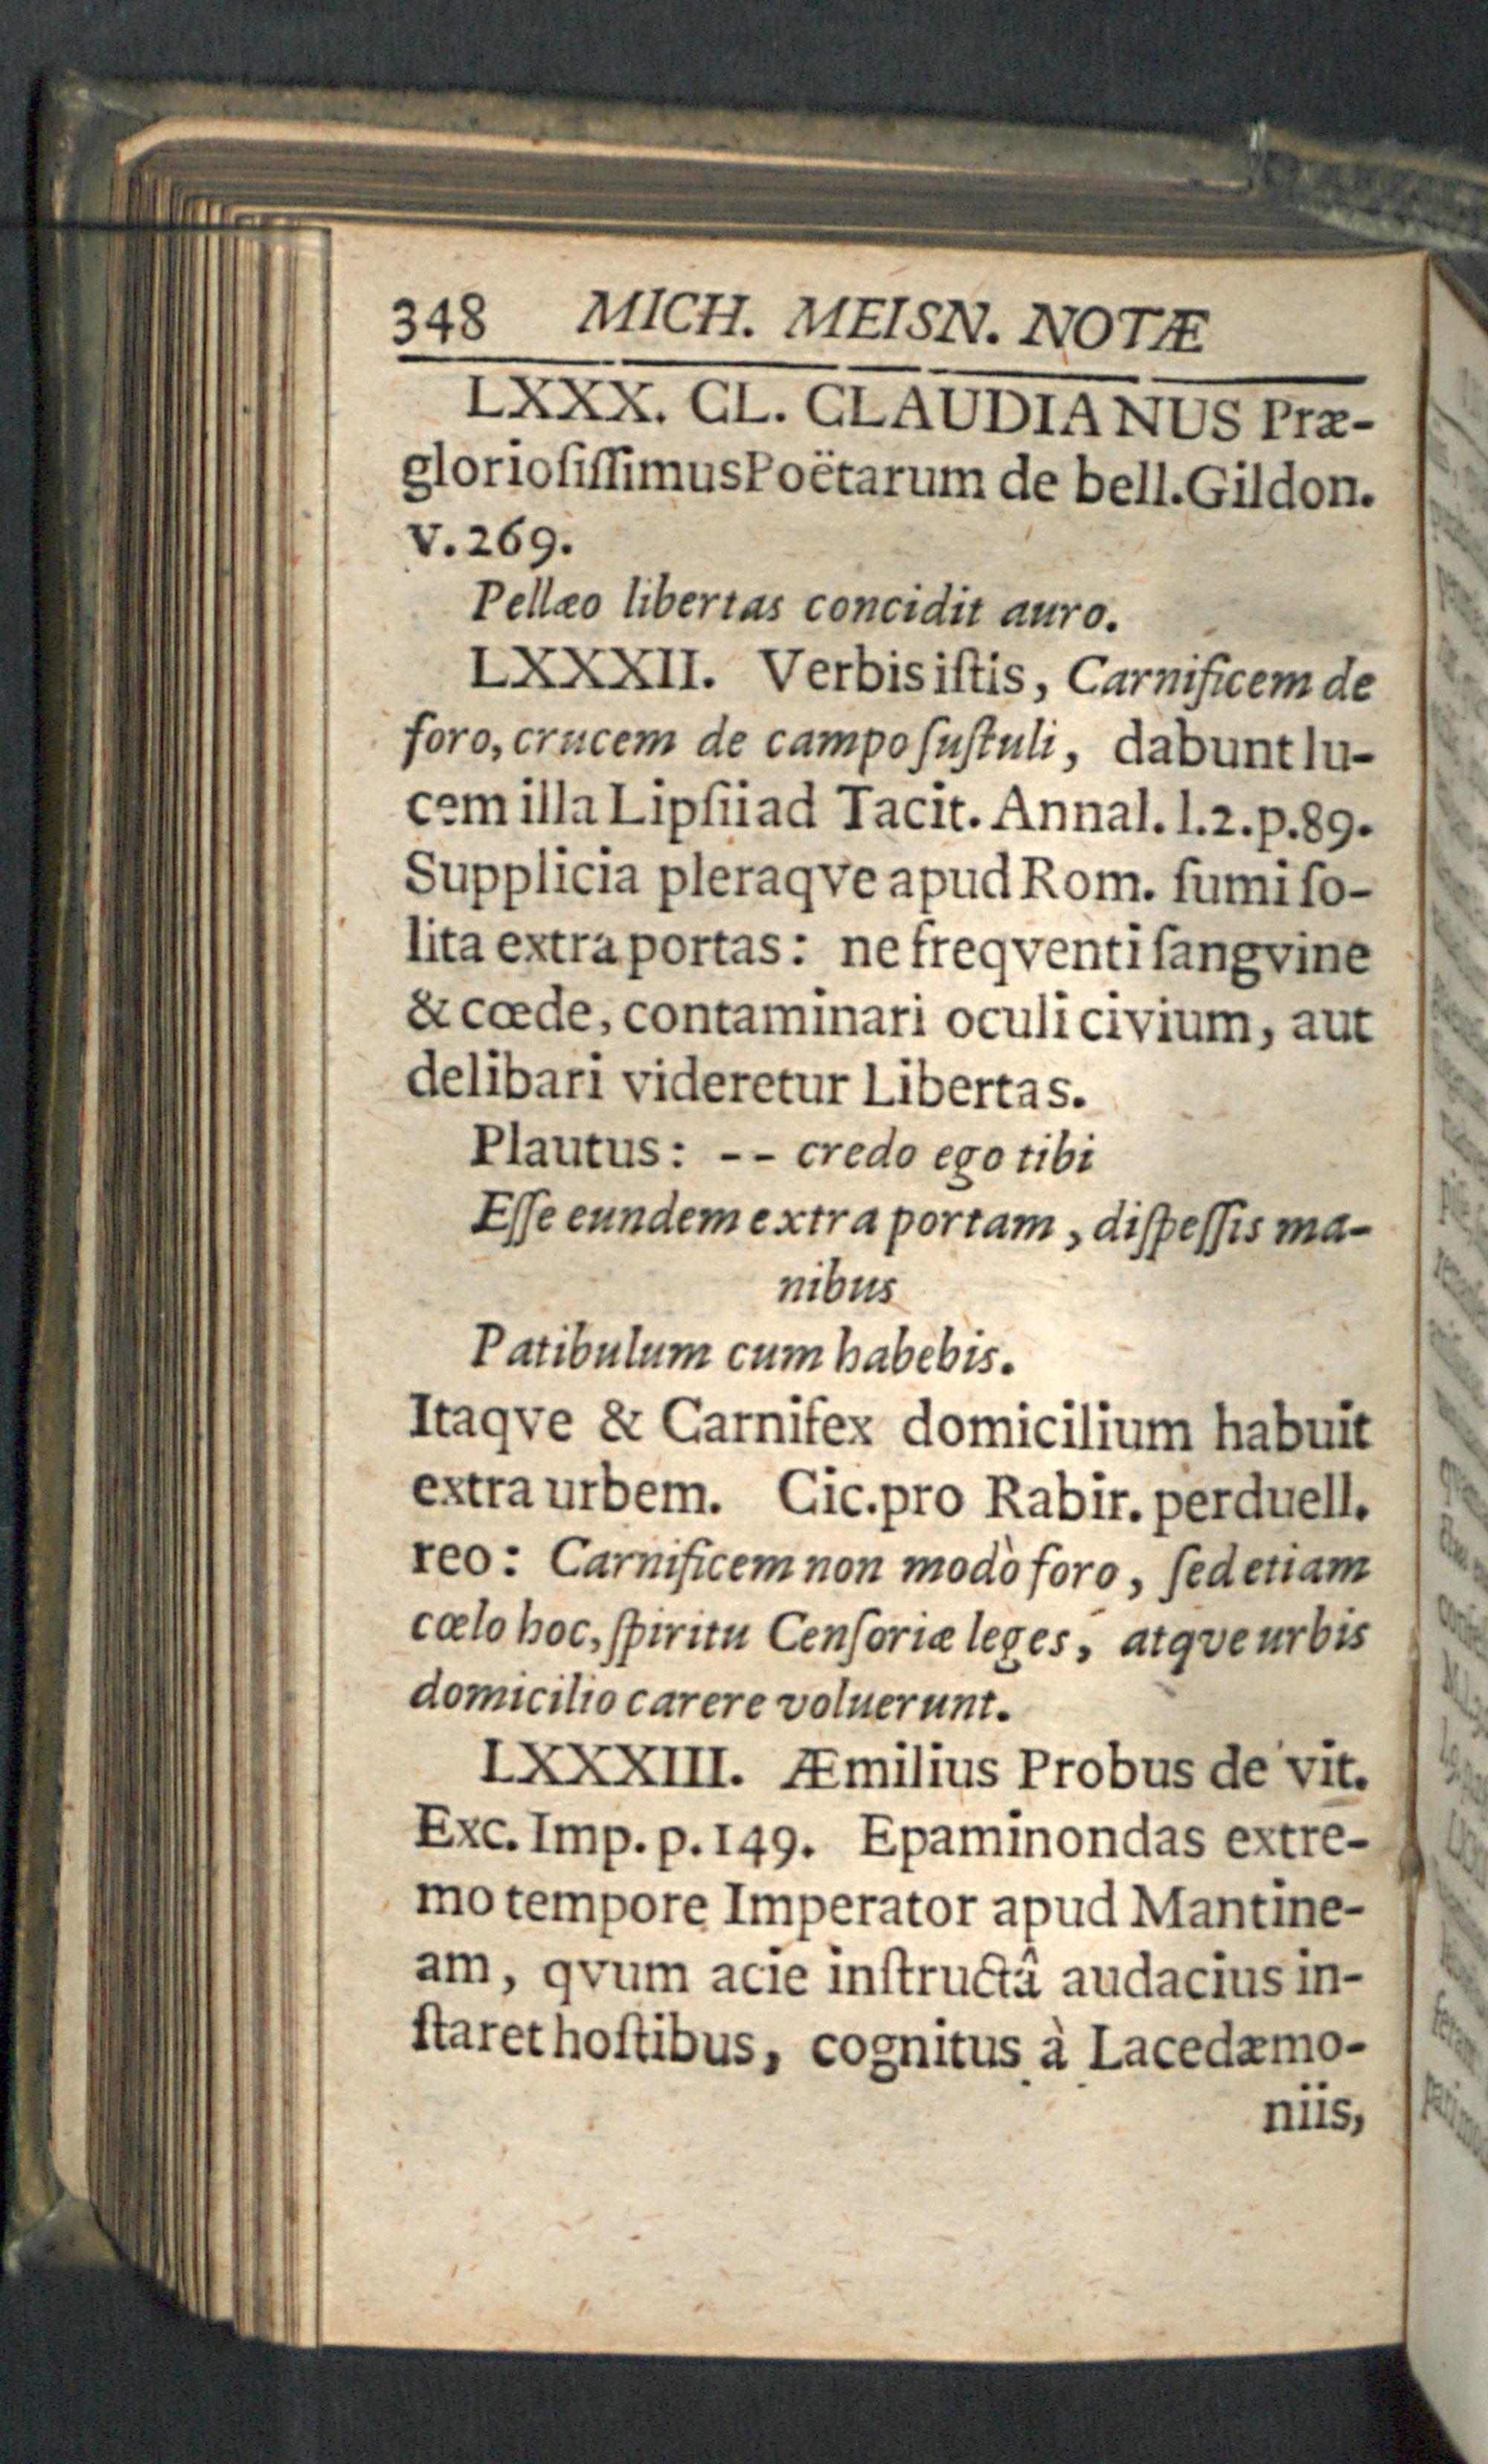 348 MICH. MEISN. NOTÆ
LXXX. CL. CLAUDIANUS Præ-
glorioſiſſimus Poëtarum de bell. Gildon.
v. 269.
Pellæo libertas concidit auro.
LXXXII. Verbis iſtis, Carnificem de
foro, crucem de campo ſuſtuli, dabunt lu-
cem illa Lipſii ad Tacit. Annal. l. 2. p. 89.
Supplicia pleraqve apud Rom. ſumi ſo-
lita extra portas: ne freqventi ſangvine
& cœde, contaminari oculi civium, aut
delibari videretur Libertas.
Plautus: -- credo ego tibi
Eſſe eundem extra portam, diſpeſſis ma-
nibus
Patibulum cum habebis.
Itaqve & Carnifex domicilium habuit
extra urbem. Cic. pro Rabir. perduell.
reo: Carnificem non modò foro, ſed etiam
cœlo hoc, ſpiritu Cenſoriæ leges, atqve urbis
domicilio carere voluerunt.
LXXXIII. Æmilius Probus de vit.
Exc. Imp. p. 149. Epaminondas extre-
mo tempore Imperator apud Mantine-
am, qvum acie inſtructâ audacius in-
ſtaret hoſtibus, cognitus à Lacedæmo-
niis,